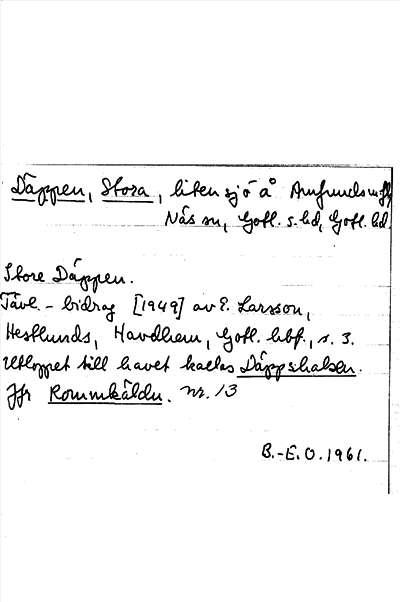 Däppen, Stora, liten sjö å
Näs sn, Gotl. s. hd, Gotl.
Store Däppen.
Tävl. - bidrag [1949] av E. Larsson,
Hestlunds, Havdhem, Gotl. hbf., s. 3.
Utloppet till havet kallas Däppshalsen.
Jfr Rommkäldu. nr. 13
B.-E.O. 1961.